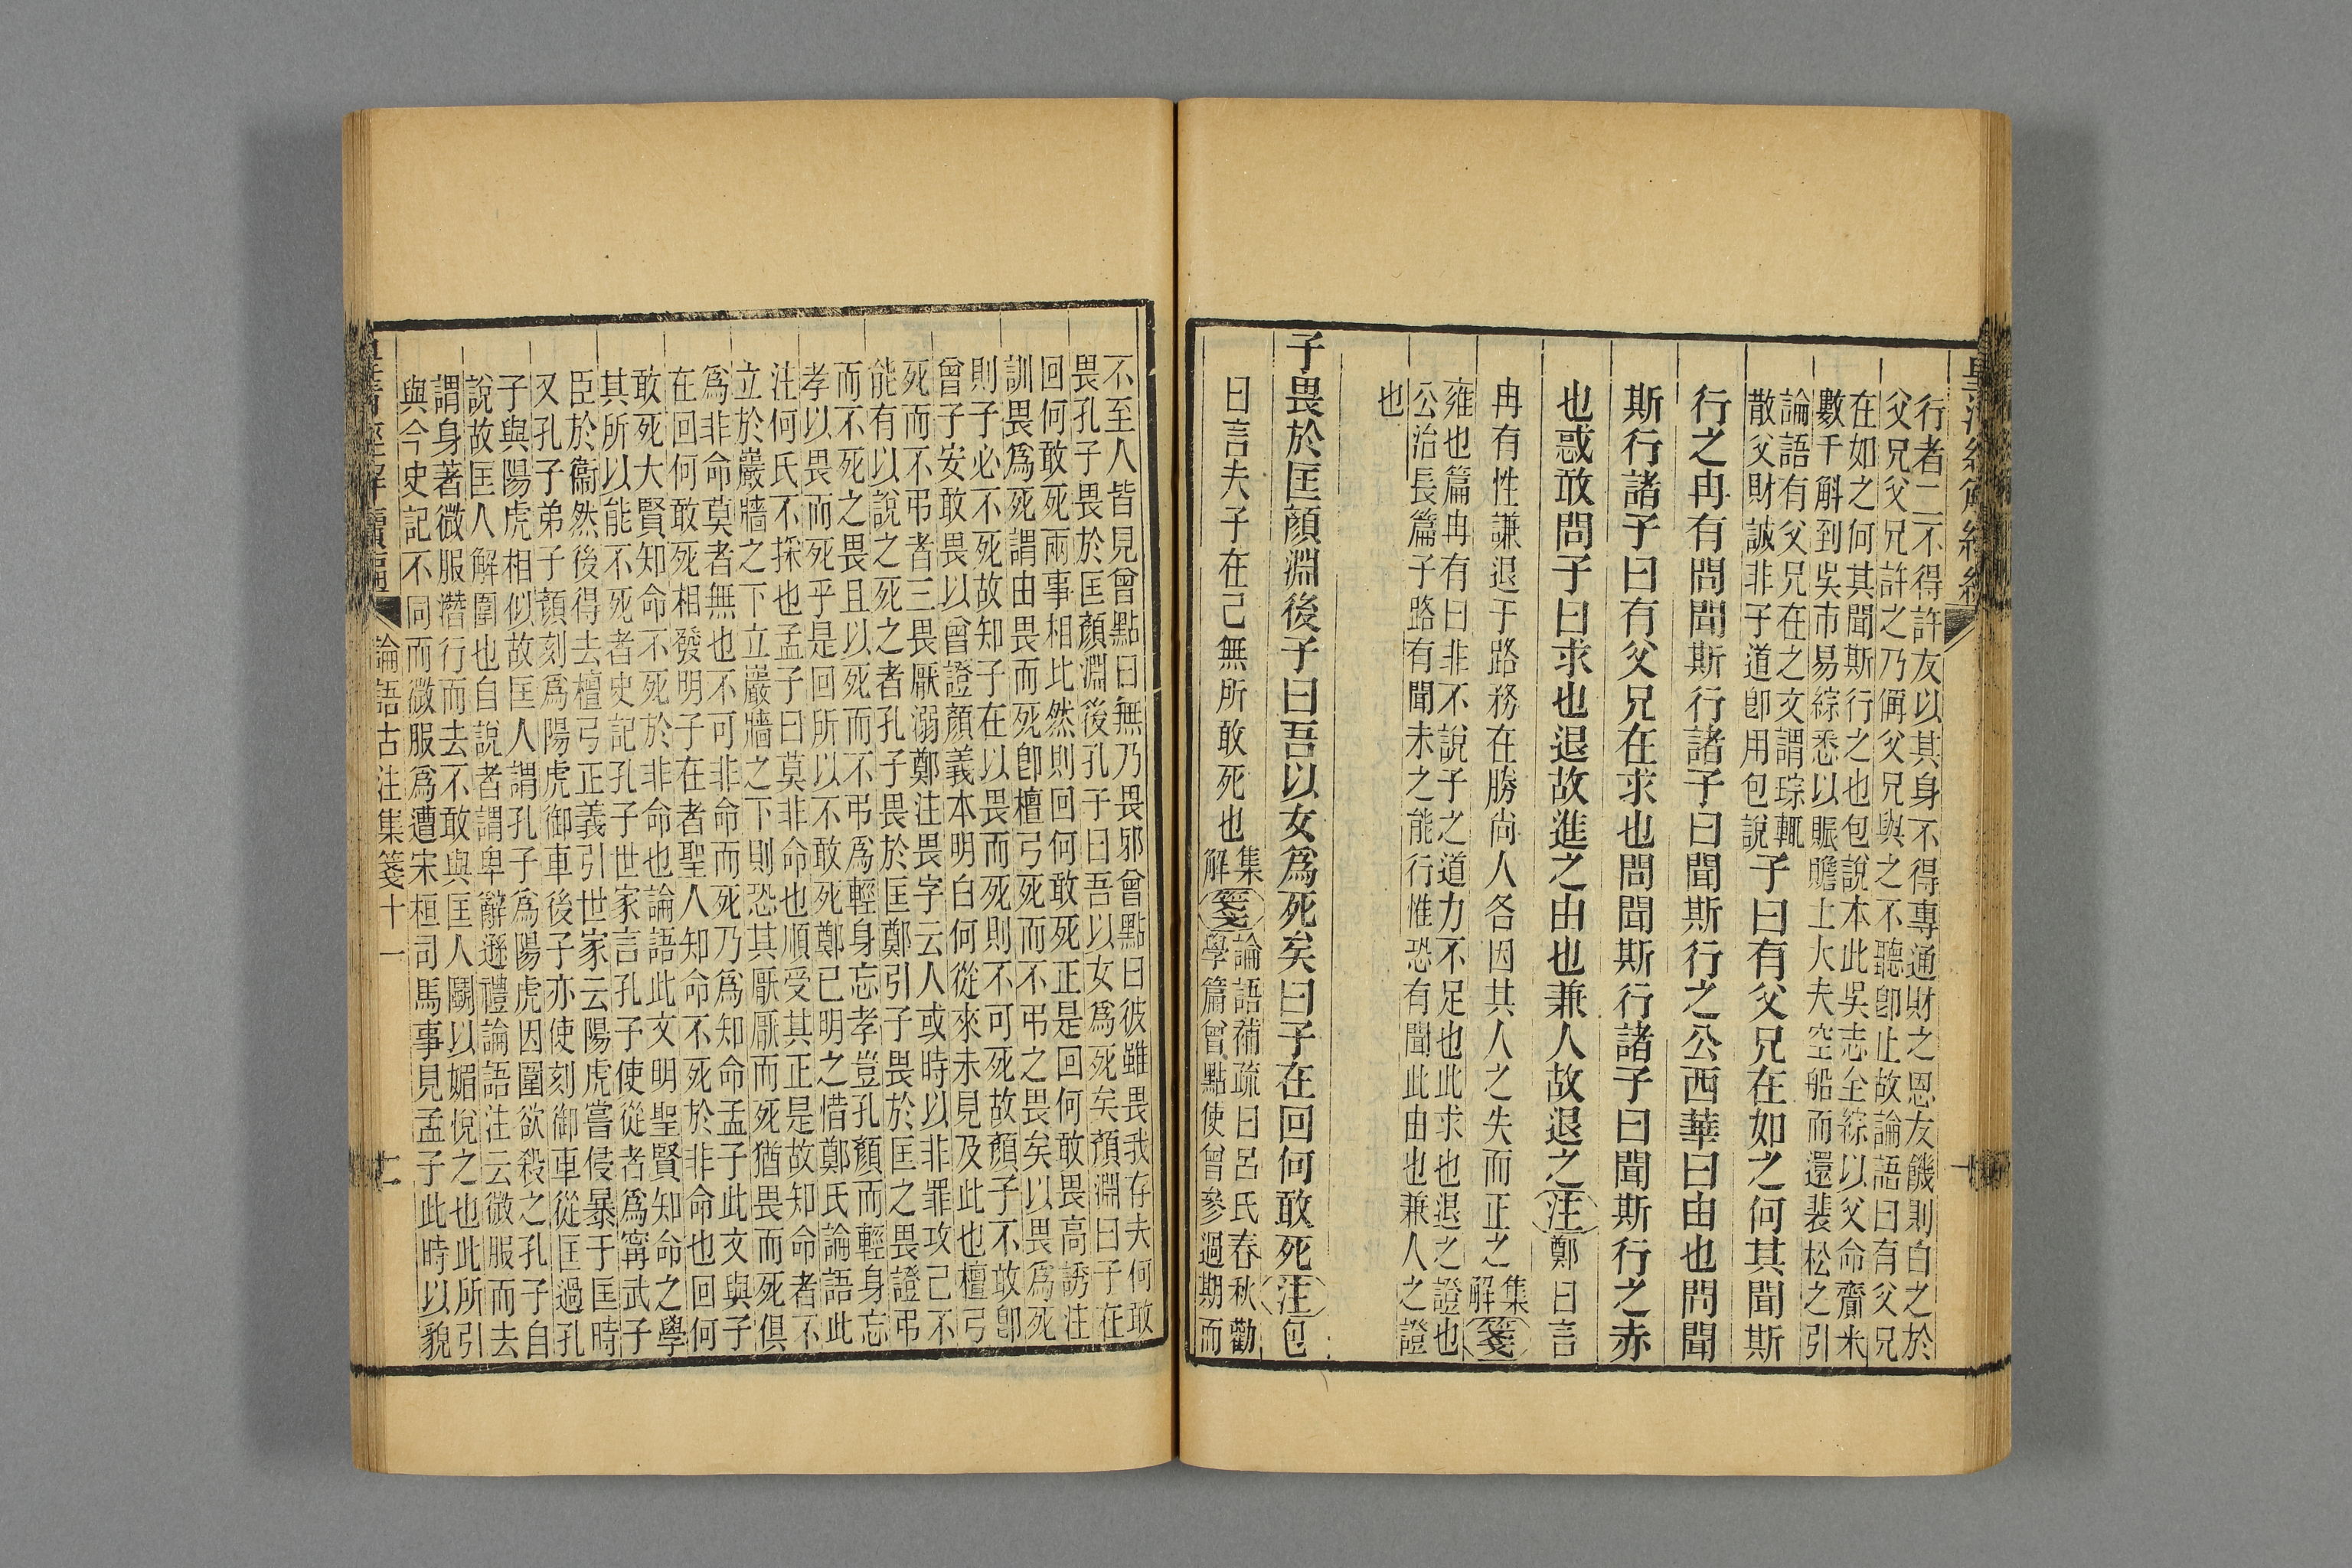 皇清經解續編
行者二不得許友以其身不得專通財之恩友饑則白之於
父兄父兄許之乃偁父兄與之不聽卽止故論語曰有父兄
在如之何其聞斯行之也包說本此吳志全綜以父命齎米
數千斛到吳市易綜悉以賑贍士大夫空船而還裴松之引
論語有父兄在之文謂琮輒
散父財誠非子道卽用包說
子曰有父兄在如之何其聞斯
行之冉有問聞斯行諸子曰聞斯行之公西華曰由也問聞
斯行諸子曰有父兄在求也問聞斯行諸子曰聞斯行之赤
也惑敢問子曰求也退故進之由也兼人故退之注鄭曰言
冉有性謙退子路務在勝尚人各因其人之失而正之集解箋
雍也篇冉有曰非不說子之道力不足也此求也退之證也
公冶長篇子路有聞未之能行惟恐有聞此由也兼人之證
也
子畏於匡顏淵後子曰吾以女爲死矣曰子在回何敢死注包
曰言夫子在己無所敢死也集解箋
論語補疏曰呂氏春秋勸
學篇曾點使曾參過期而
不至人皆見曾點曰無乃畏邪曾點曰彼雖畏我存夫何敢
畏孔子畏於匡顏淵後孔子曰吾以女爲死矣顏淵曰子在
回何敢死兩事相比然則回何敢死正是回何敢畏高誘注
訓畏爲死謂由畏而死卽檀弓死而不弔之畏矣以畏爲死
則子必不死故知子在以畏而死則不可死故顏子不敢卽
曾子安敢畏以曾證顏義本明白何從來未見及此也檀弓
死而不弔者三畏厭溺鄭注畏字云人或時以非罪攻己不
能有以說之死之者孔子畏於匡鄭引子畏於匡之畏證弔
而不死之畏且以死而不弔爲輕身忘孝豈孔顏而輕身忘
孝以畏而死乎是回所以不敢死鄭已明之惜鄭氏論語此
注何氏不採也孟子曰莫非命也順受其正是故知命者不
立於巖牆之下立巖牆之下則恐其厭厭而死猶畏而死俱
爲非命莫者無也不可非命而死乃爲知命孟子此文與子
在回何敢死相發明子在者聖人知命不死於非命也回何
敢死大賢知命不死於非命也論語此文明聖賢知命之學
其所以能不死者史記孔子世家言孔子使從者爲甯武子
臣於衞然後得去檀弓正義引世家云陽虎嘗侵暴于匡時
又孔子弟子顏刻爲陽虎御車後子亦使刻御車從匡過孔
子與陽虎相似故匡人謂孔子爲陽虎因圍欲殺之孔子自
說故匡人解圍也自說者謂卑辭遜禮論語注云微服而去
謂身著微服潛行而去不敢與匡人鬬以媚悅之也此所引
與今史記不同而微服爲遭宋桓司馬事見孟子此時以貌
皇清經解續編 論語古注集箋十一 二